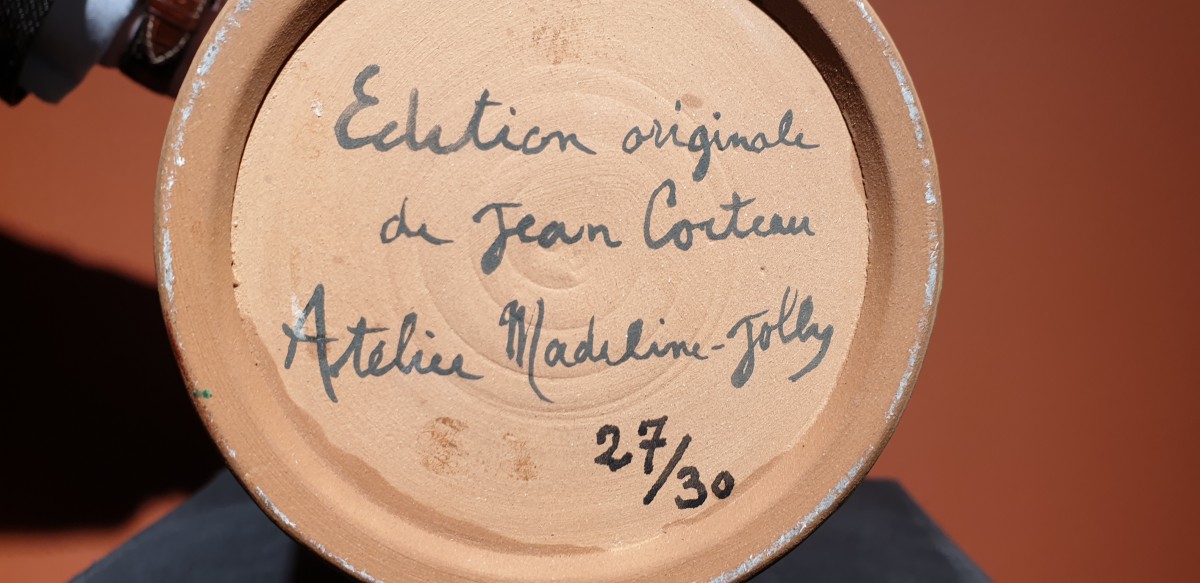 Edition originale
de Jean Cocteau
Atelier Madeline-Jolly
27/30